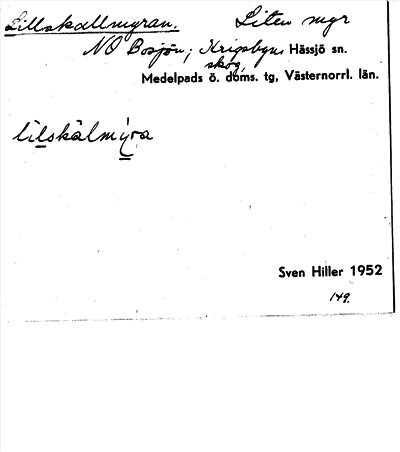 Lillskallmyran. Liten myr
NO Bosjön; Krigsbyns Hässjö sn.
skog,
Medelpads ö. doms. tg, Västernorrl. län.
lilskàlmýra
Sven Hiller 1952
149.